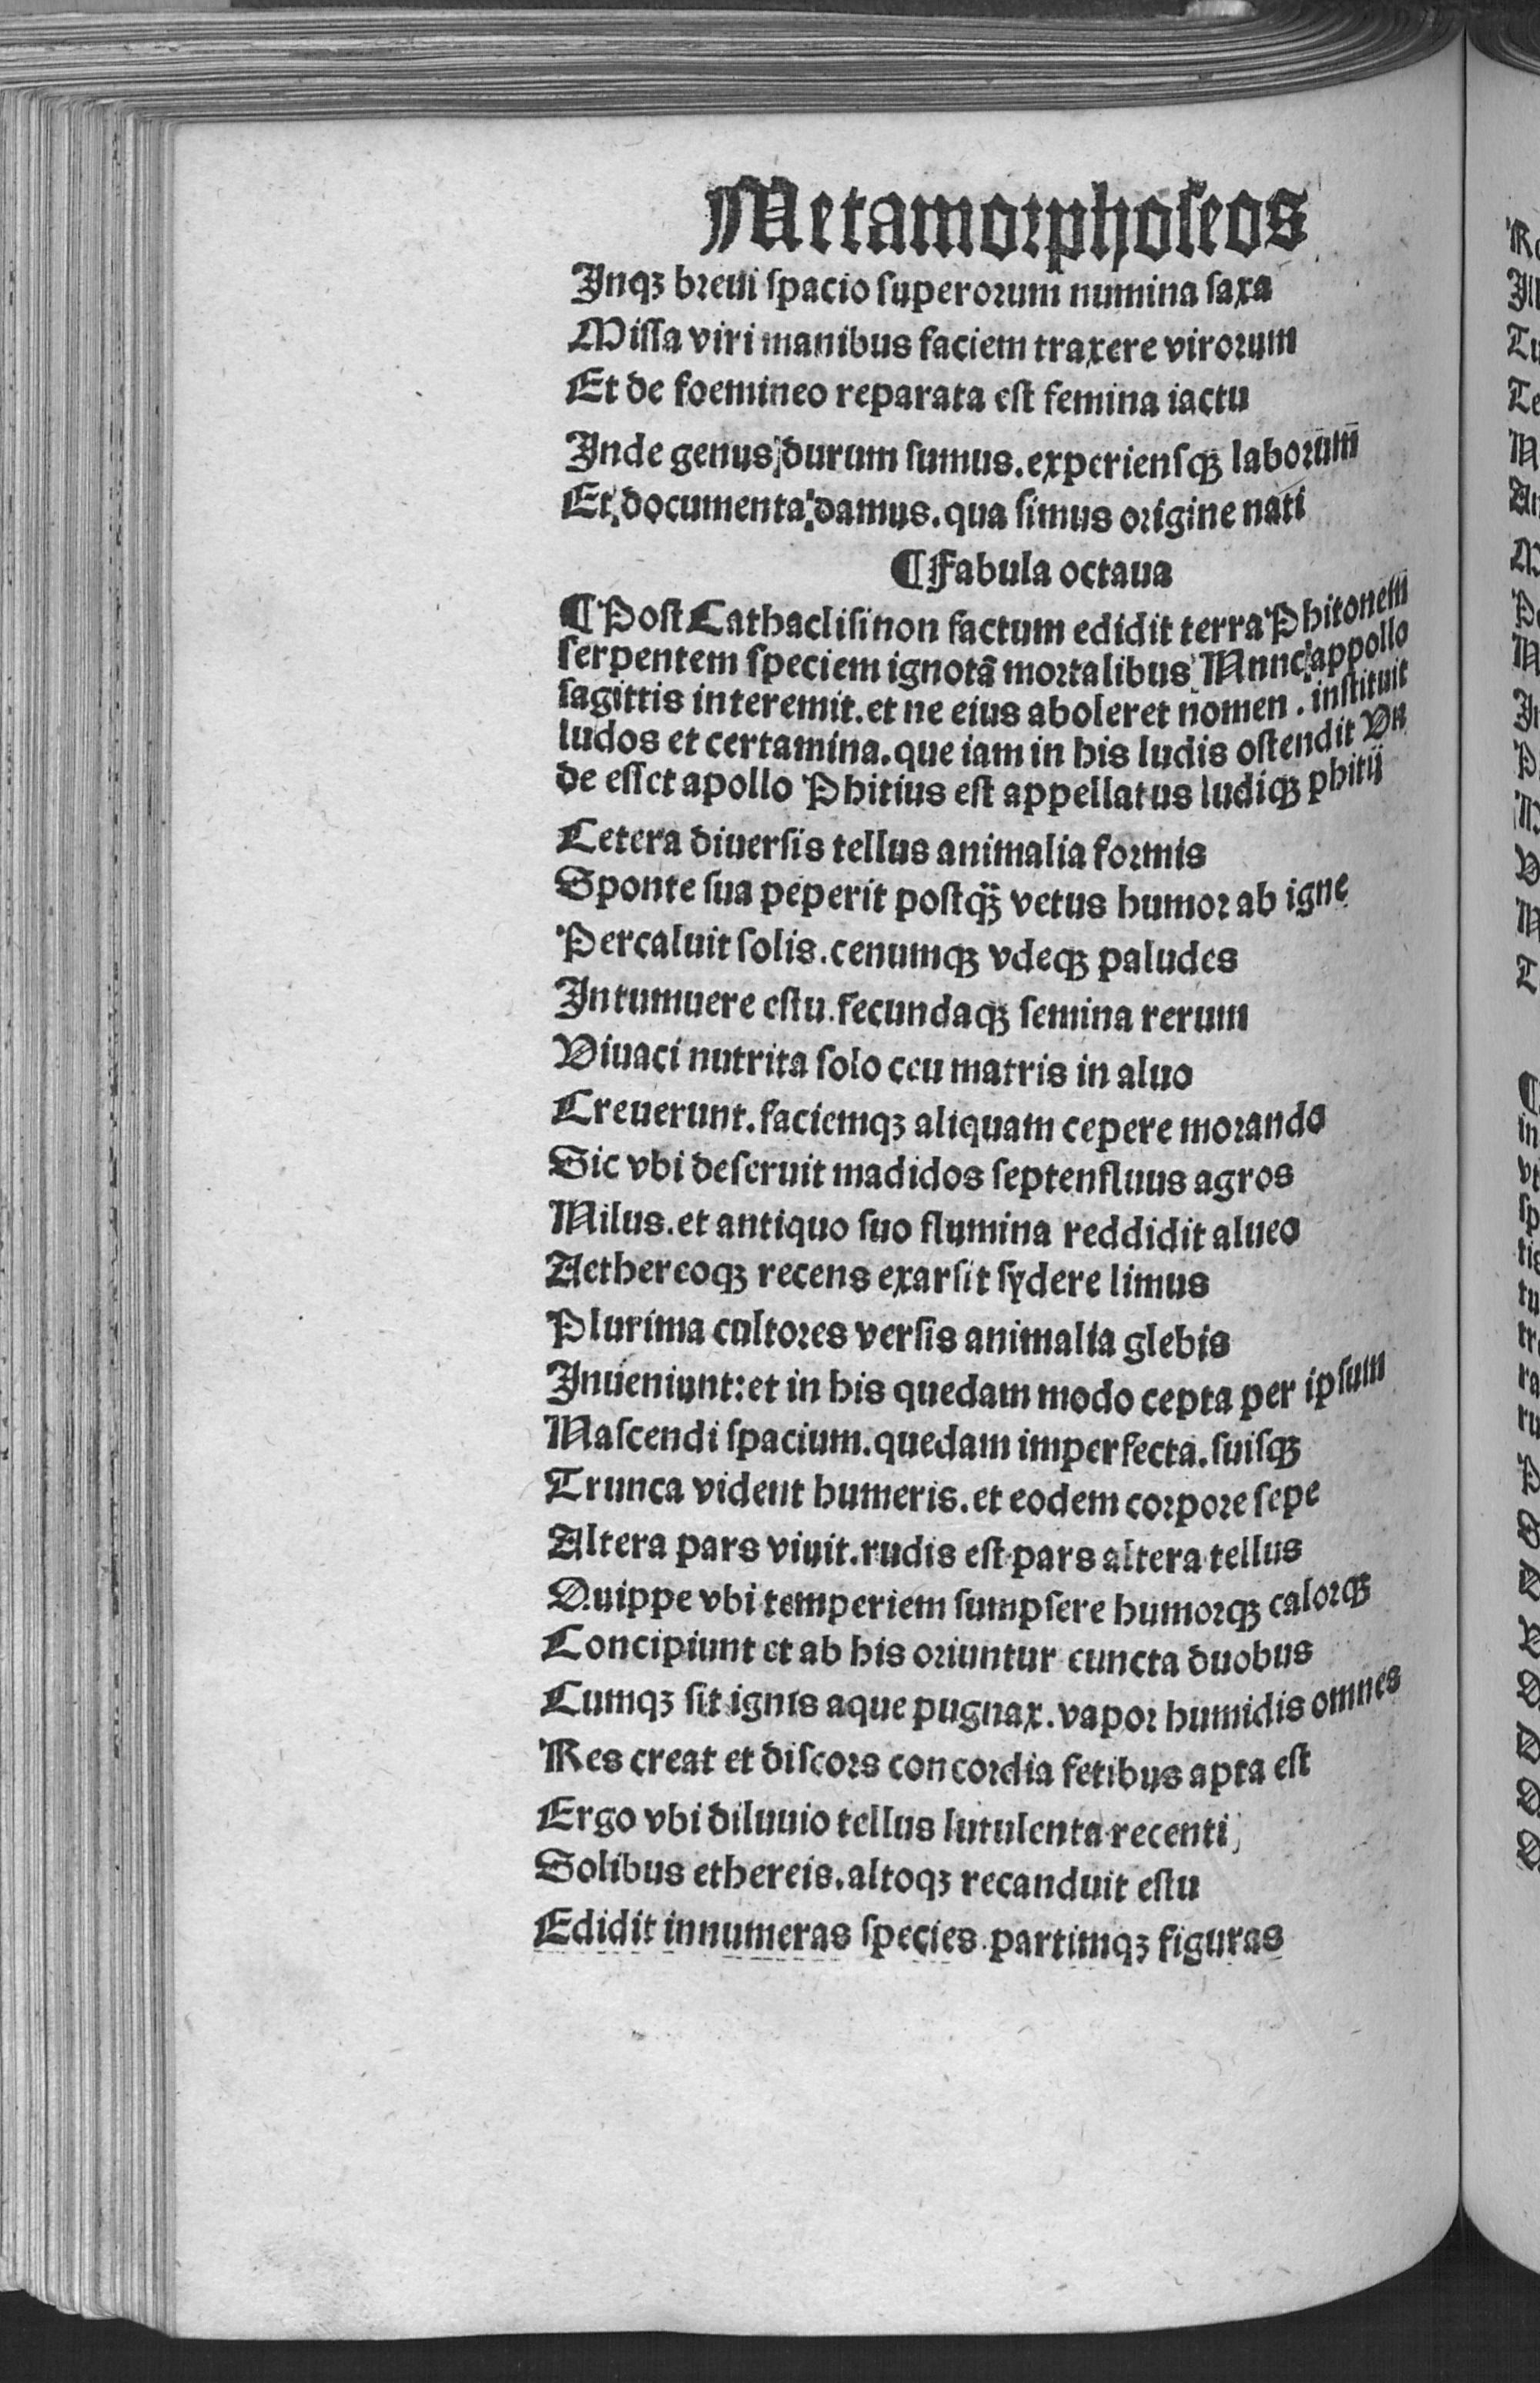 Metamorphoseos
Inqꝫ breui ſpacio ſuperorum numina ſaxa
Miſſa viri manibus faciem traxere virorum
Et de foemineo reparata eſt femina iactu
Inde genus durum ſumus. experienſqꝫ laborum
Et documenta damus. qua ſimus origine nati
¶ Fabula octaua
¶ Poſt Cathacliſinon factum edidit terra Phitonem
ſerpentem ſpeciem ignotã mortalibus Nunc appollo
ſagittis interemit. et ne eius aboleret nomen. inſtituit
ludos et certamina. que iam in his ludis oſtendit Vn
de eſſet apollo Phitius eſt appellatus ludiqꝫ phitij
Cetera diuerſis tellus animalia formis
Sponte ſua peperit poſtqꝫ̃ vetus humor ab igne
Percaluit ſolis. cenumqꝫ vdeqꝫ paludes
Intumuere eſtu. fecundaqꝫ ſemina rerum
Viuaci nutrita ſolo ceu matris in aluo
Creuerunt. faciemqꝫ aliquam cepere morando
Sic vbi deſeruit madidos ſeptenfluus agros
Nilus. et antiquo ſuo flumina reddidit alueo
Aethereoqꝫ recens exarſit ſydere limus
Plurima cultores verſis animalia glebis
Inueniunt: et in his quedam modo cepta per ipſum
Naſcendi ſpacium. quedam imperfecta. ſuiſqꝫ
Trunca vident humeris. et eodem corpore ſepe
Altera pars viuit. rudis eſt pars altera tellus
Quippe vbi temperiem ſumpſere humorqꝫ calorqꝫ
Concipiunt et ab his oriuntur cuncta duobus
Cumqꝫ ſit ignis aque pugnax. vapor humidis omnes
Res creat et diſcors concordia fetibus apta eſt
Ergo vbi diluuio tellus lutulenta recenti
Solibus ethereis. altoqꝫ recanduit eſtu
Edidit innumeras ſpecies partimqꝫ figuras